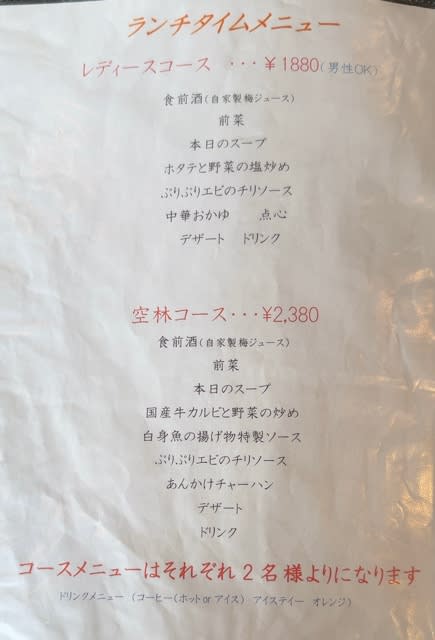 ランチタイムメニュー
レディースコース ・・・¥1880(男性OK)
食前酒(自家製梅ジュース)
前菜
本日のスープ
ホタテと野菜の塩炒め
ぷりぷりエビのチリソース
中華おかゆ 点心
デザート ドリンク
空林コース・・・¥2,380
食前酒(自家製梅ジュース)
前菜
本日のスープ
国産牛カルビと野菜の炒め
白身魚の揚げ物特製ソース
ぷりぷりエビのチリソース
あんかけチャーハン
デザート
ドリンク
コースメニューはそれぞれ2名様よりになります
ドリンクメニュー (コーヒー(ホットorアイス) アイスティー オレンジ)